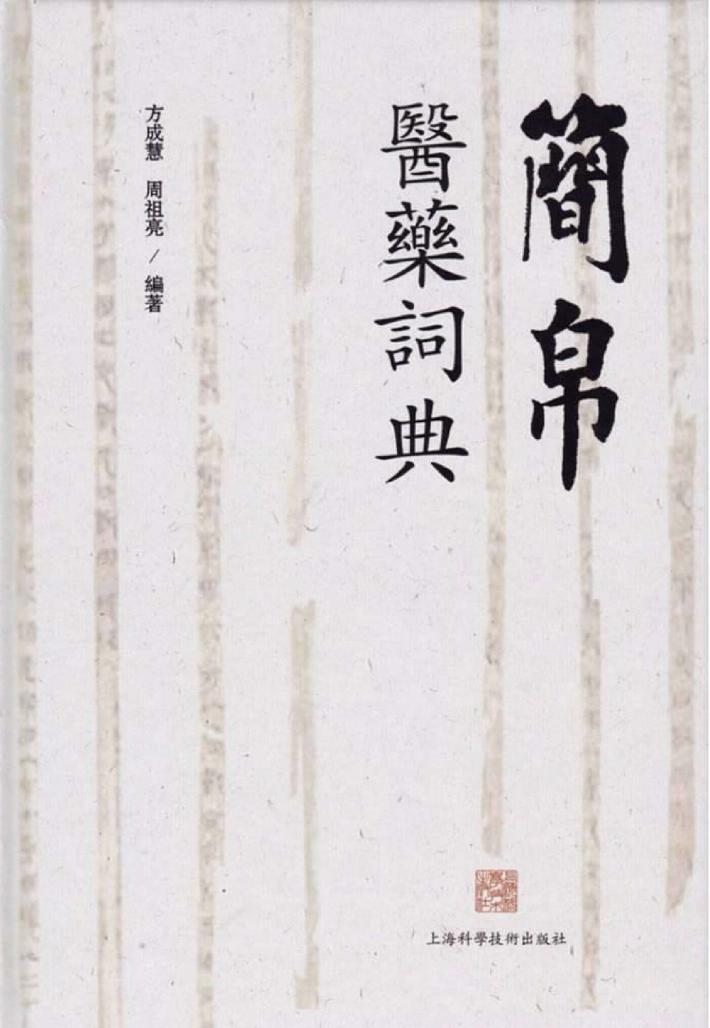 簡帛
醫藥詞典
方成慧 周祖亮 / 編著
上海科學技術出版社